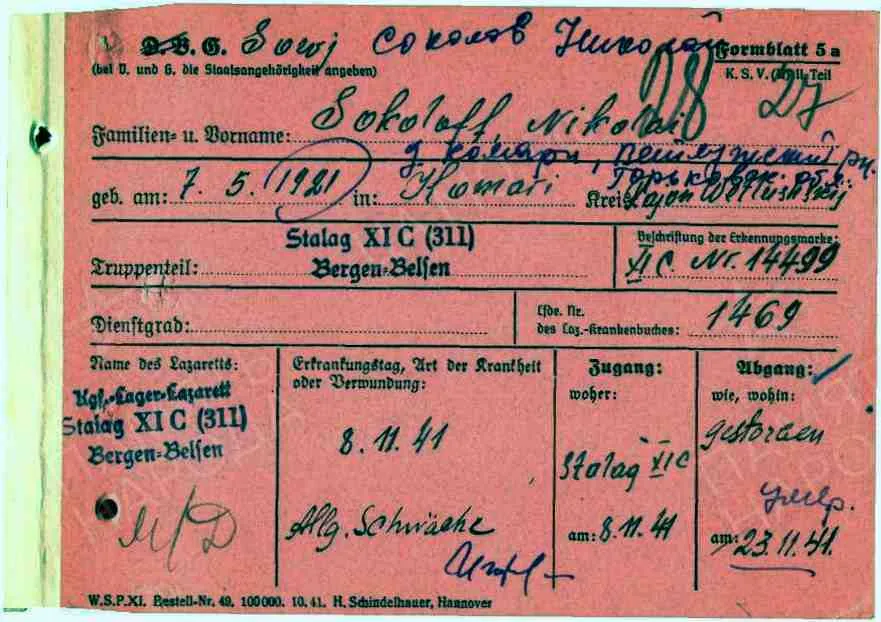 D.B.G. Sowj Соколов Николай Formblatt 5a
(bei D. und G. die Staatsangehörigkeit angeben) K.S.V. Teil
28 27
Familien- u. Vorname: Sokoloff, Nikolai
д. комари,
geb. am: 7. 5. 1921 in: Komari Kreis
Stalag XI C (311)
Bergen-Belsen
Truppenteil:
Beschriftung der Erkennungsmarke:
XI C. Nr. 14499
Dienstgrad:
Lfde. Nr.
des Laz.-Krankenbuches: 1469
Name des Lazaretts:
Kgf.-Lager-Lazarett
Stalag XI C (311)
Bergen-Belsen
Erkrankungstag, Art der Krankheit
oder Verwundung:
8. 11. 41
Allg. Schwäche
Zugang:
woher:
Stalag XI C
am: 8. 11. 41
Abgang:
wie, wohin:
gestorben
умер.
am: 23. 11. 41.
W.S.P.XI. Bestell-Nr. 49. 100000. 10. 41. H. Schindelhauer, Hannover